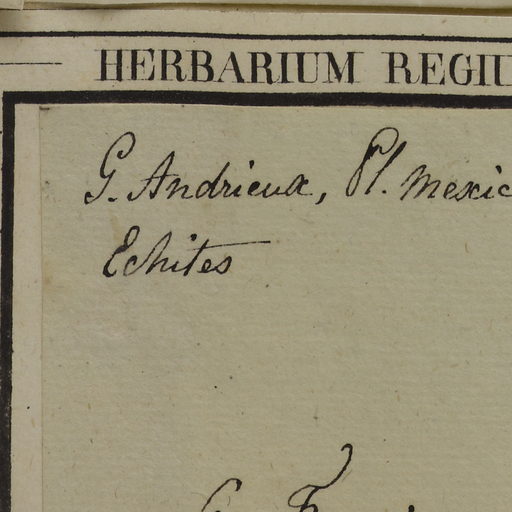 HERBARIUM REGIU
G. Andrieux, Pl. Mexic
Echites